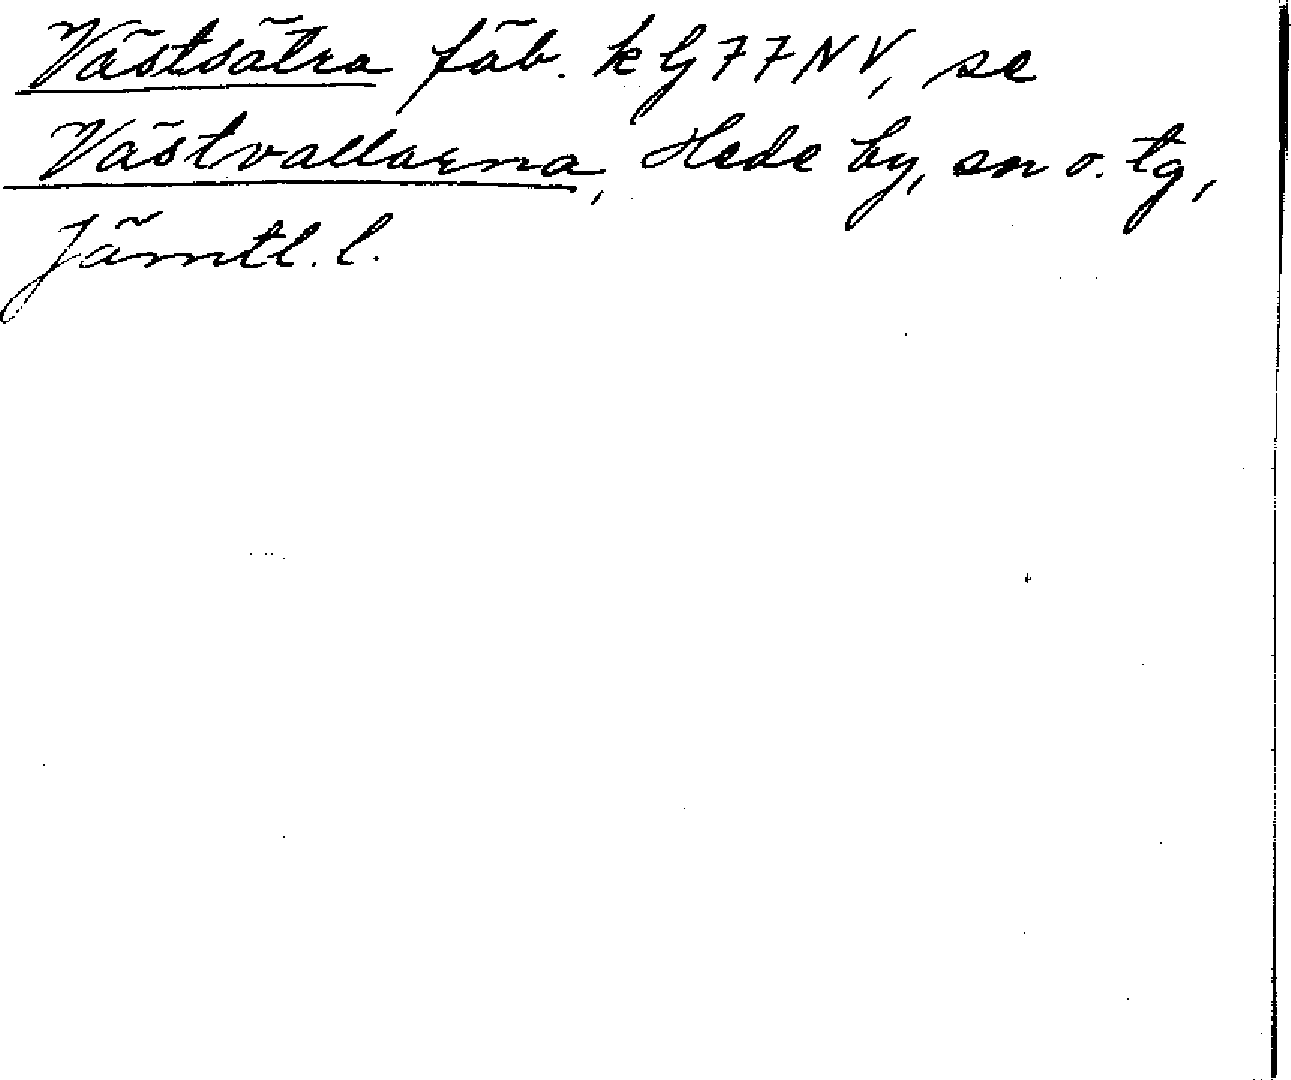 Västsätra fäb. k G 77 NV, se
Västvallarna, Hede by, sn o. tg,
Jämtl. l.